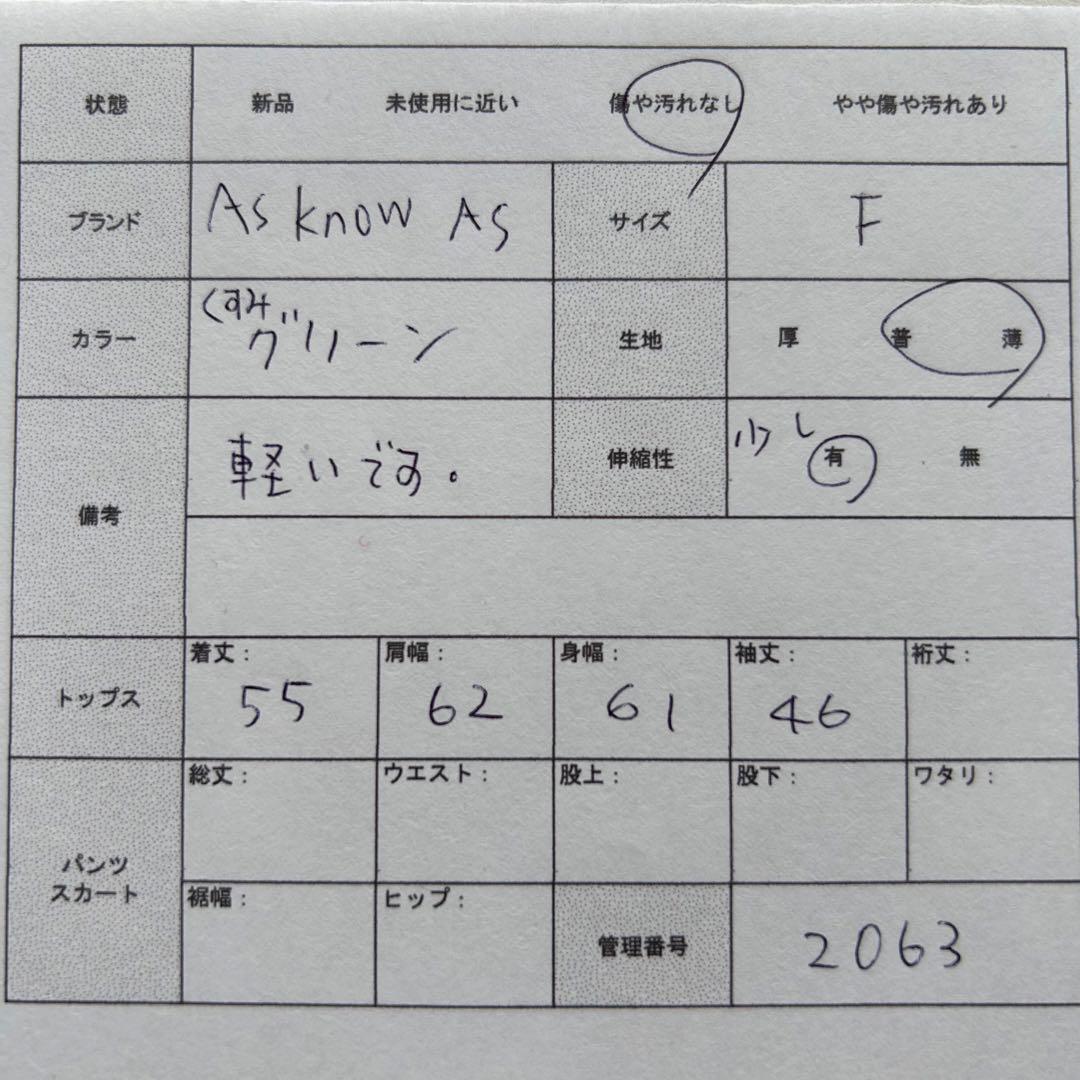 状態 新品 未使用に近い 傷や汚れなし やや傷や汚れあり
ブランド As know As サイズ F
カラー くすみグリーン 生地 厚 普 薄
備考 軽いです。 伸縮性 少し有 無
トップス 着丈: 55 肩幅: 62 身幅: 61 袖丈: 46 裄丈:
パンツ スカート 総丈: ウエスト: 股上: 股下: ワタリ:
裾幅: ヒップ: 管理番号 2063